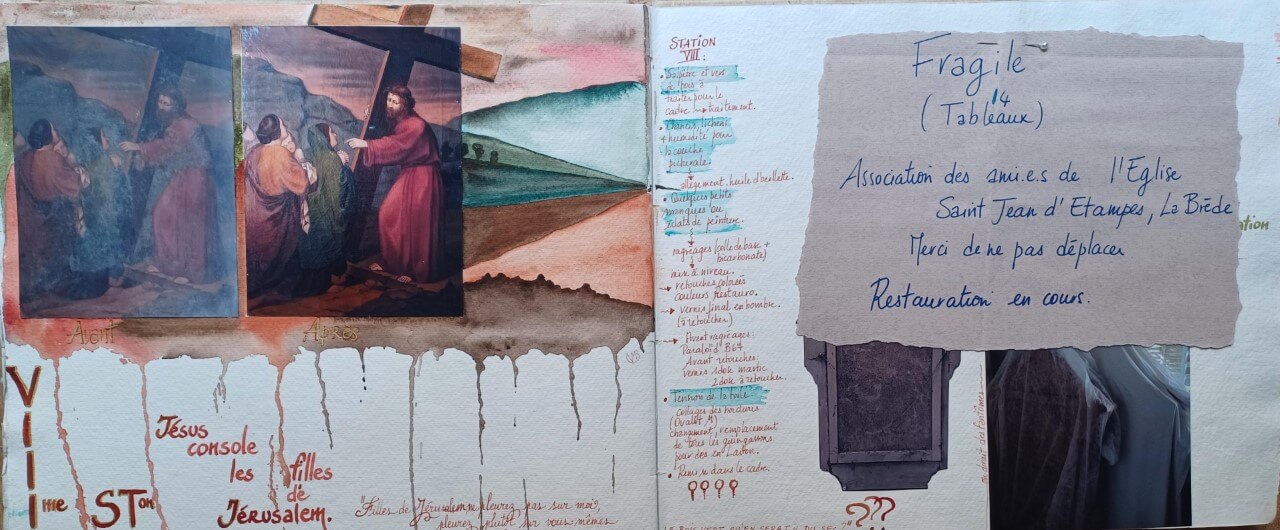 Avant
Après
VIII me STon
Jésus
console
les filles
de
Jérusalem.
"Filles de Jérusalem ne pleurez pas sur moi,
pleurez plutôt sur vous-mêmes
STATION
VIII :
• Salpêtre et vers
de bois à
traiter pour le
cadre → traitement.
• Chancis, lichens
+ humidité pour
la couche
picturale.
allègement huile d'œillette.
• Quelques petits
manques ou
éclats de peinture.
ragréages (colle de base +
bicarbonate)
mise à niveau.
→ retouches colorées
couleurs Restauro.
→ vernis final en bombe.
(à retoucher)
→ Avant ragréages:
Paraloïd B67
Avant retouches:
vernis 1dose mastic
2dose à retoucher.
• Tension de la toile:
collages des bordures
changement, remplacement
de tous les
pour des en Laiton.
• Remise dans le cadre.
Fragile
14
(Tableaux)
Association des ami.e.s de l'Eglise
Saint Jean d'Etampes, La Brède
Merci de ne pas déplacer
Restauration en cours.
ation
on dirait des fantômes
???
LE BOIS VERT QU'EN SERA T'IL DU SEC ?"